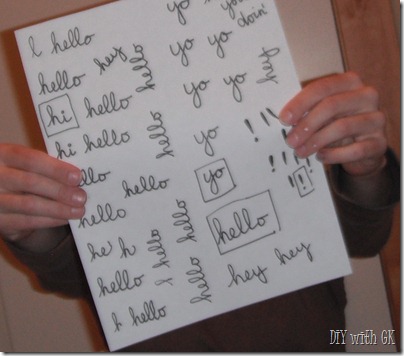 yo you
doin'
l hello yo yo
hello hey hello yo yo hey
hi hello
hi hello hello yo ! ! \
! ! ! !
hello hello yo ! !
hello hello hello
he h hello
hello l hey hey
h hello hello
DIY with GK